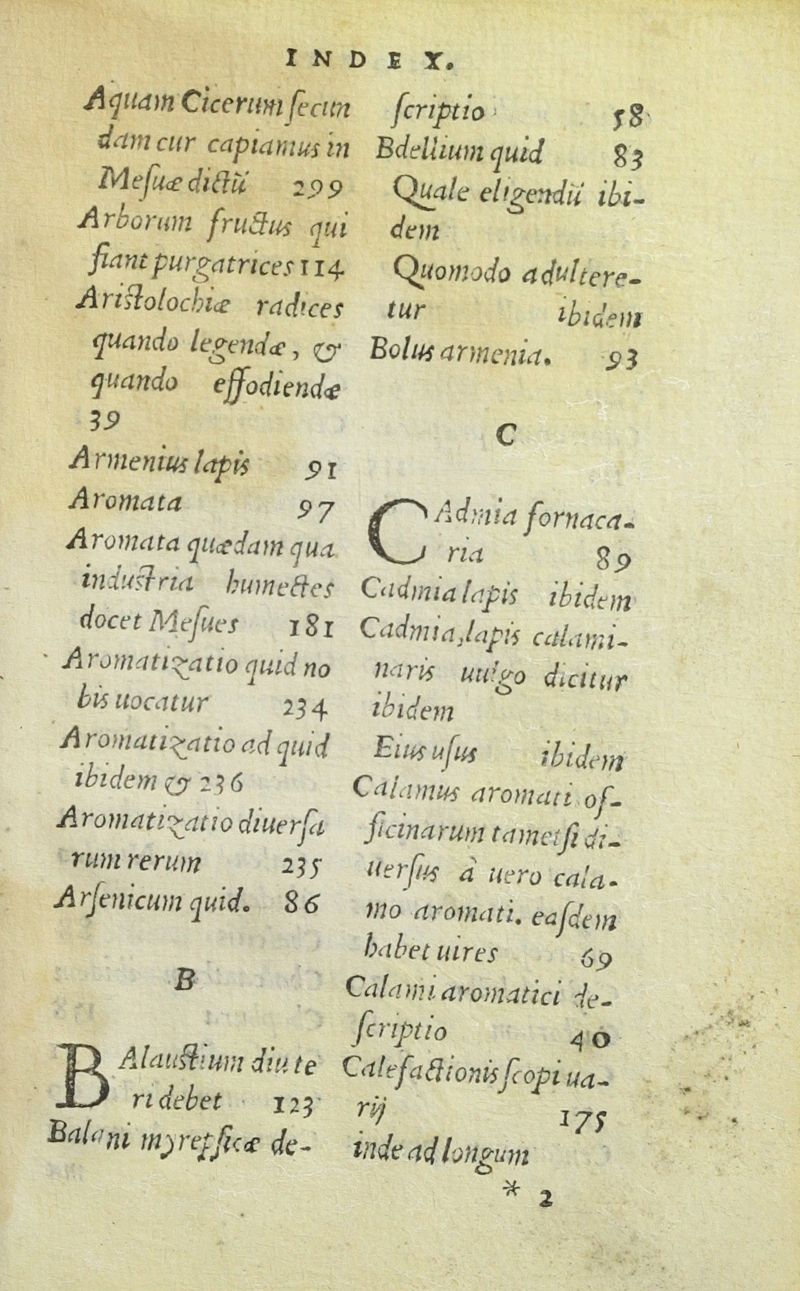 INDEX.
Aquam Cicerum secun
dam cur capiamus in
Mesuæ dictū 299
Arborum fructus qui
fiant purgatrices 114
Aristolochiæ radices
quando legendæ, &
quando effodiendæ
39
Armenius lapis 91
Aromata 97
Aromata quædam qua
industria humectes
docet Mesues 181
Aromatizatio quid no
bis uocatur 234
Aromatizatio ad quid
ibidem & 236
Aromatizatio diuersa
rum rerum 235
Arsenicum quid. 86
B
BAlaustium diu te
ri debet 123
Balani myrepsicæ de-
scriptio 58
Bdellium quid 83
Quale eligendū ibi-
dem
Quomodo adultere-
tur ibidem
Bolus armenia. 93
C
CAdmia fornaca-
ria 89
Cadmia lapis ibidem
Cadmia, lapis calami-
naris uulgo dicitur
ibidem
Eius usus ibidem
Calamus aromati of-
ficinarum tametsi di-
uersus à uero cala-
mo aromati. easdem
habet uires 69
Calami aromatici de-
scriptio 40
Calefactionis scopi ua-
rij 175
inde ad longum
* 2